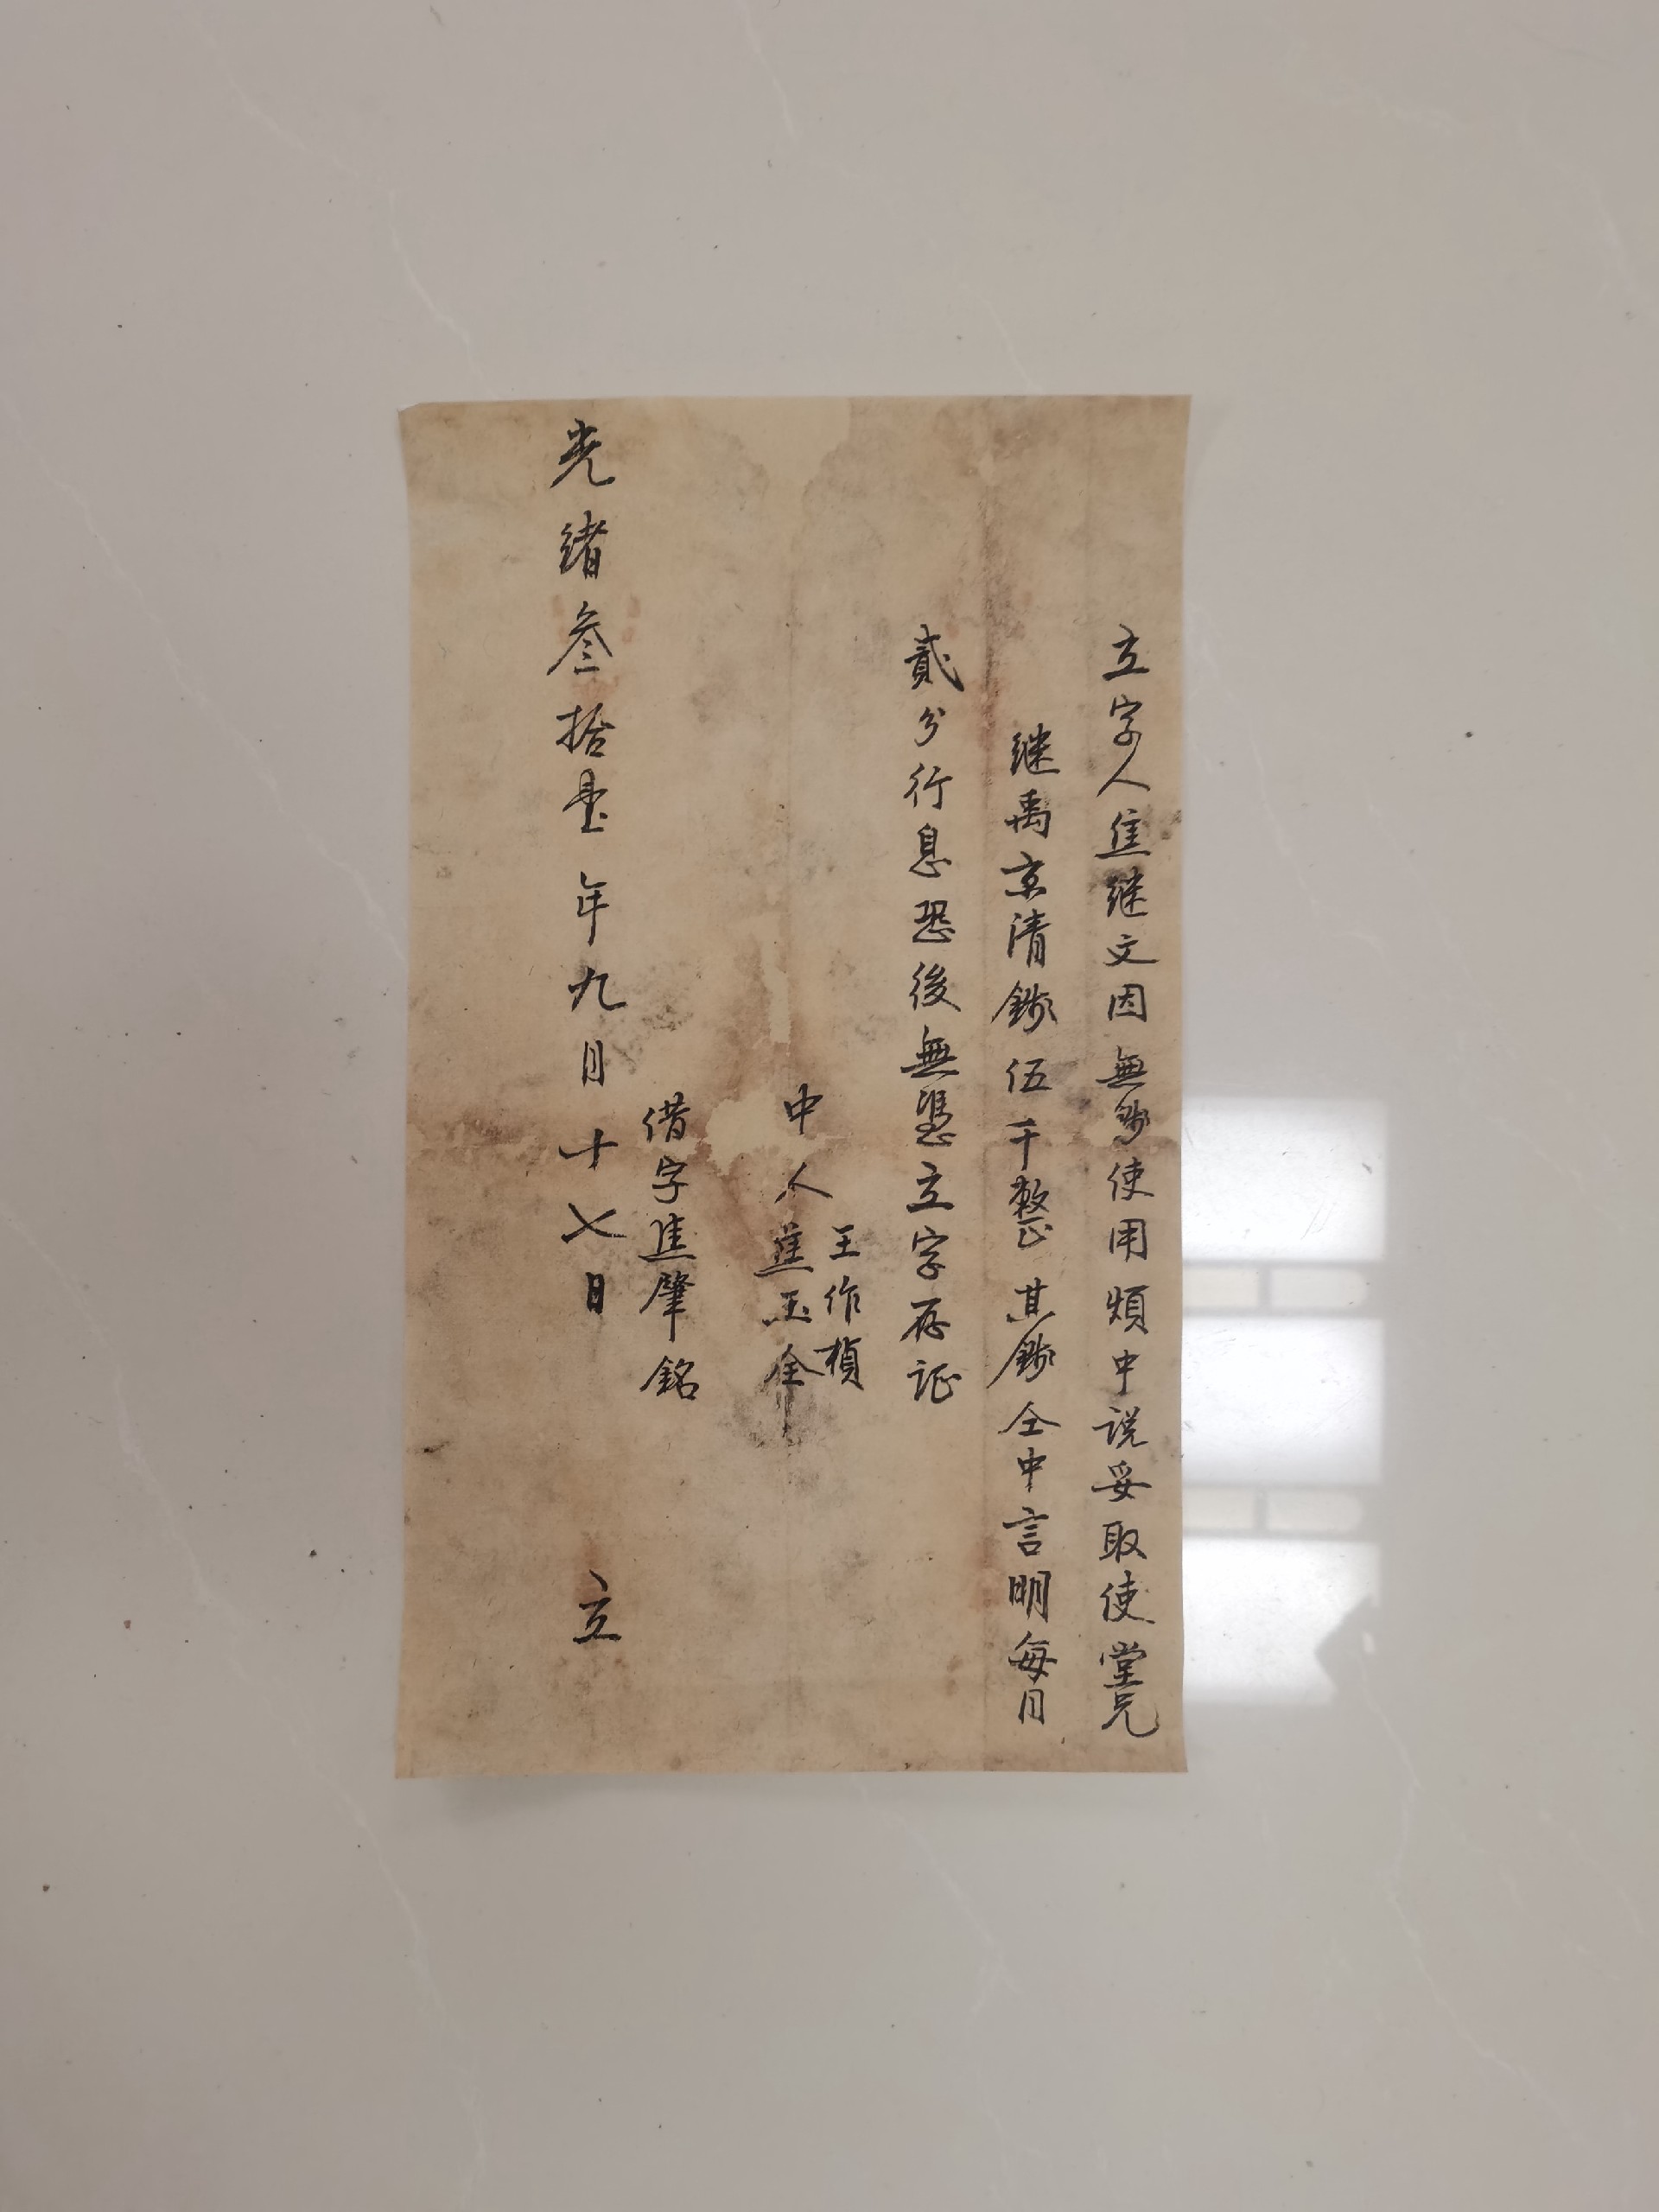 立字人焦继文因無錢使用煩中说妥取使堂兄
继禹京清錢伍千整其錢仝中言明每月
貳分行息恐後無憑立字存证
王作楨
中人焦玉全
借字焦肇銘
光緒叁拾壹年九月十七日立